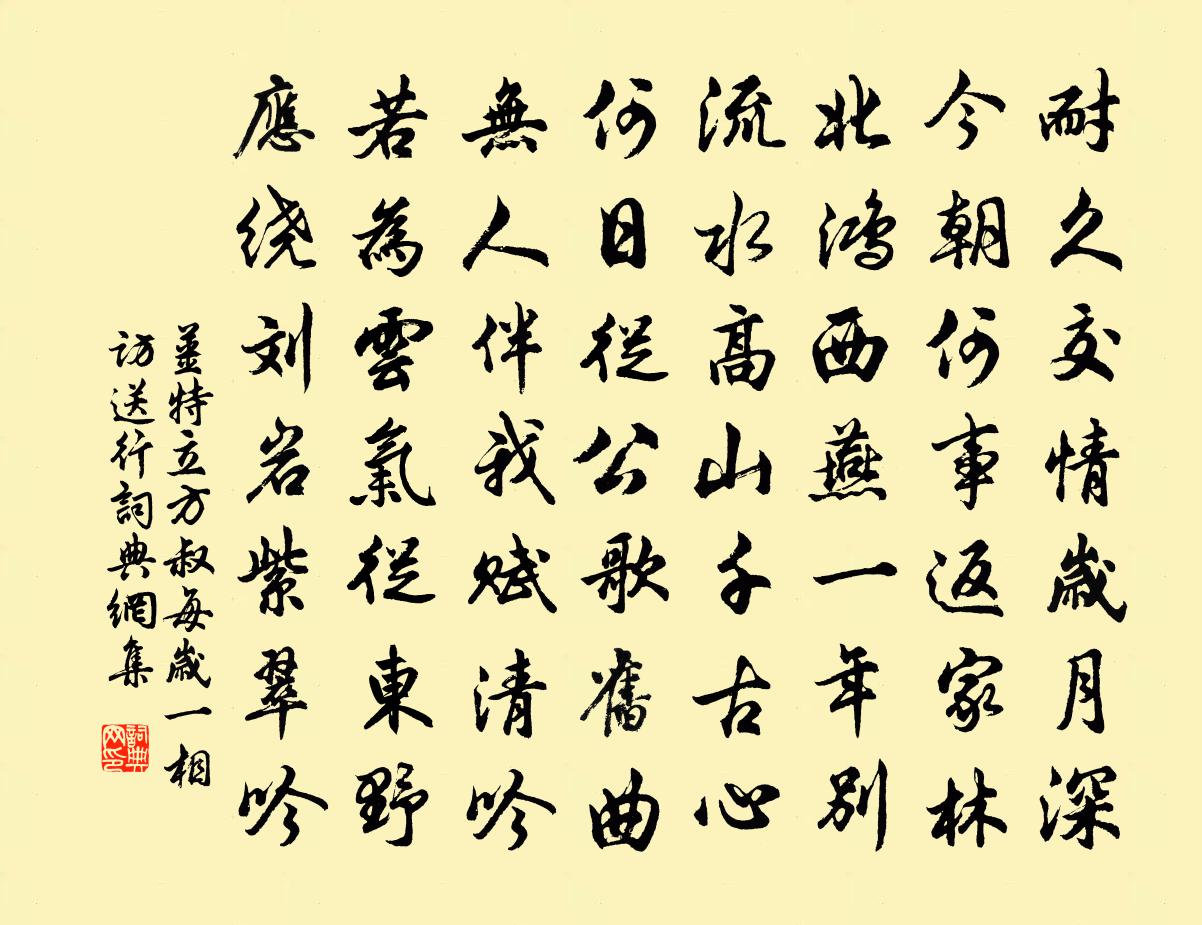 耐久交情歲月深
今朝何事返家林
北鴻西燕一年別
流水高山千古心
何日從公歌舊曲
無人伴我賦清吟
若為雲氣從東野
應绕刘岩紫翠吟
姜特立方叔每歲一相
訪送行詞典網集
詞典网印